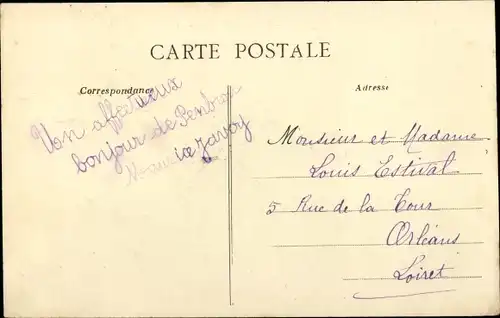 CARTE POSTALE
Correspondance
Adresse
Un affectueux
bonjour de Penbron
Monsieur et Madame
Louis Estival
5 Rue de la Tour
Orléans
Loiret